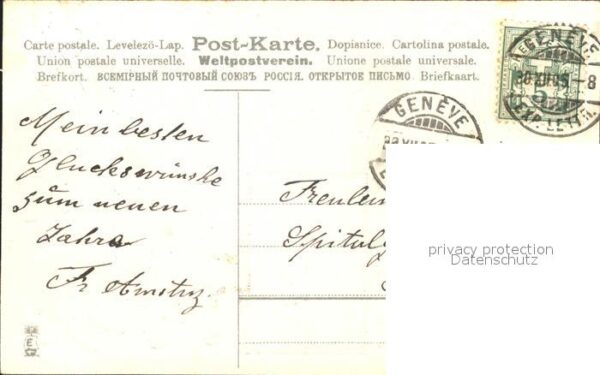 Carte postale. Levelező-Lap. Post-Karte. Dopisnice. Cartolina postale.
Union postale universelle. Weltpostverein. Unione postale universale.
Brefkort. ВСЕМІРНЫЙ ПОЧТОВЫЙ СОЮЗЪ РОССІЯ. ОТКРЫТОЕ ПИСЬМО. Briefkaart.
GENÈVE
30 XII 05 - 8
EXP. LETTR.
GENÈVE
Mein besten
Gluckswünshe
zum neuen
Jahra
Fr Amstuz
Freulein
Spitalg
privacy protection
Datenschutz
E